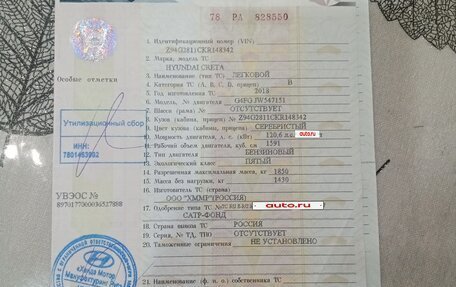 78 РА 828550
1. Идентификационный номер (VIN)
Z94G2811CKR148342
2. Марка, модель ТС
HYUNDAI CRETA
3. Наименование (тип ТС) ЛЕГКОВОЙ
4. Категория ТС (A, B, C, D, прицеп) B
5. Год изготовления ТС 2018
6. Модель, № двигателя G4FG JW547151
7. Шасси (рама) № ОТСУТСТВУЕТ
8. Кузов (кабина, прицеп) № Z94G2811CKR148342
9. Цвет кузова (кабины, прицепа) СЕРЕБРИСТЫЙ
10. Мощность двигателя, л. с. 110.6 л.с. auto.ru
11. Рабочий объем двигателя, куб. см 1591
12. Тип двигателя БЕНЗИНОВЫЙ
13. Экологический класс ПЯТЫЙ
14. Разрешенная максимальная масса, кг 1850
15. Масса без нагрузки, кг 1430
16. Изготовитель ТС (страна)
ООО "ХММР"(РОССИЯ)
17. Одобрение типа ТС № auto.ru
САТР-ФОНД
18. Страна вывоза ТС РОССИЯ
19. Серия, № ТД, ТПО ОТСУТСТВУЕТ
20. Таможенные ограничения НЕ УСТАНОВЛЕНО
21. Наименование (ф. и. о.) собственника ТС
Особые отметки
Утилизационный сбор
ИНН:
7801463902
УВЭОС №
Хэндэ Мотор
Мануфактуринг Рус